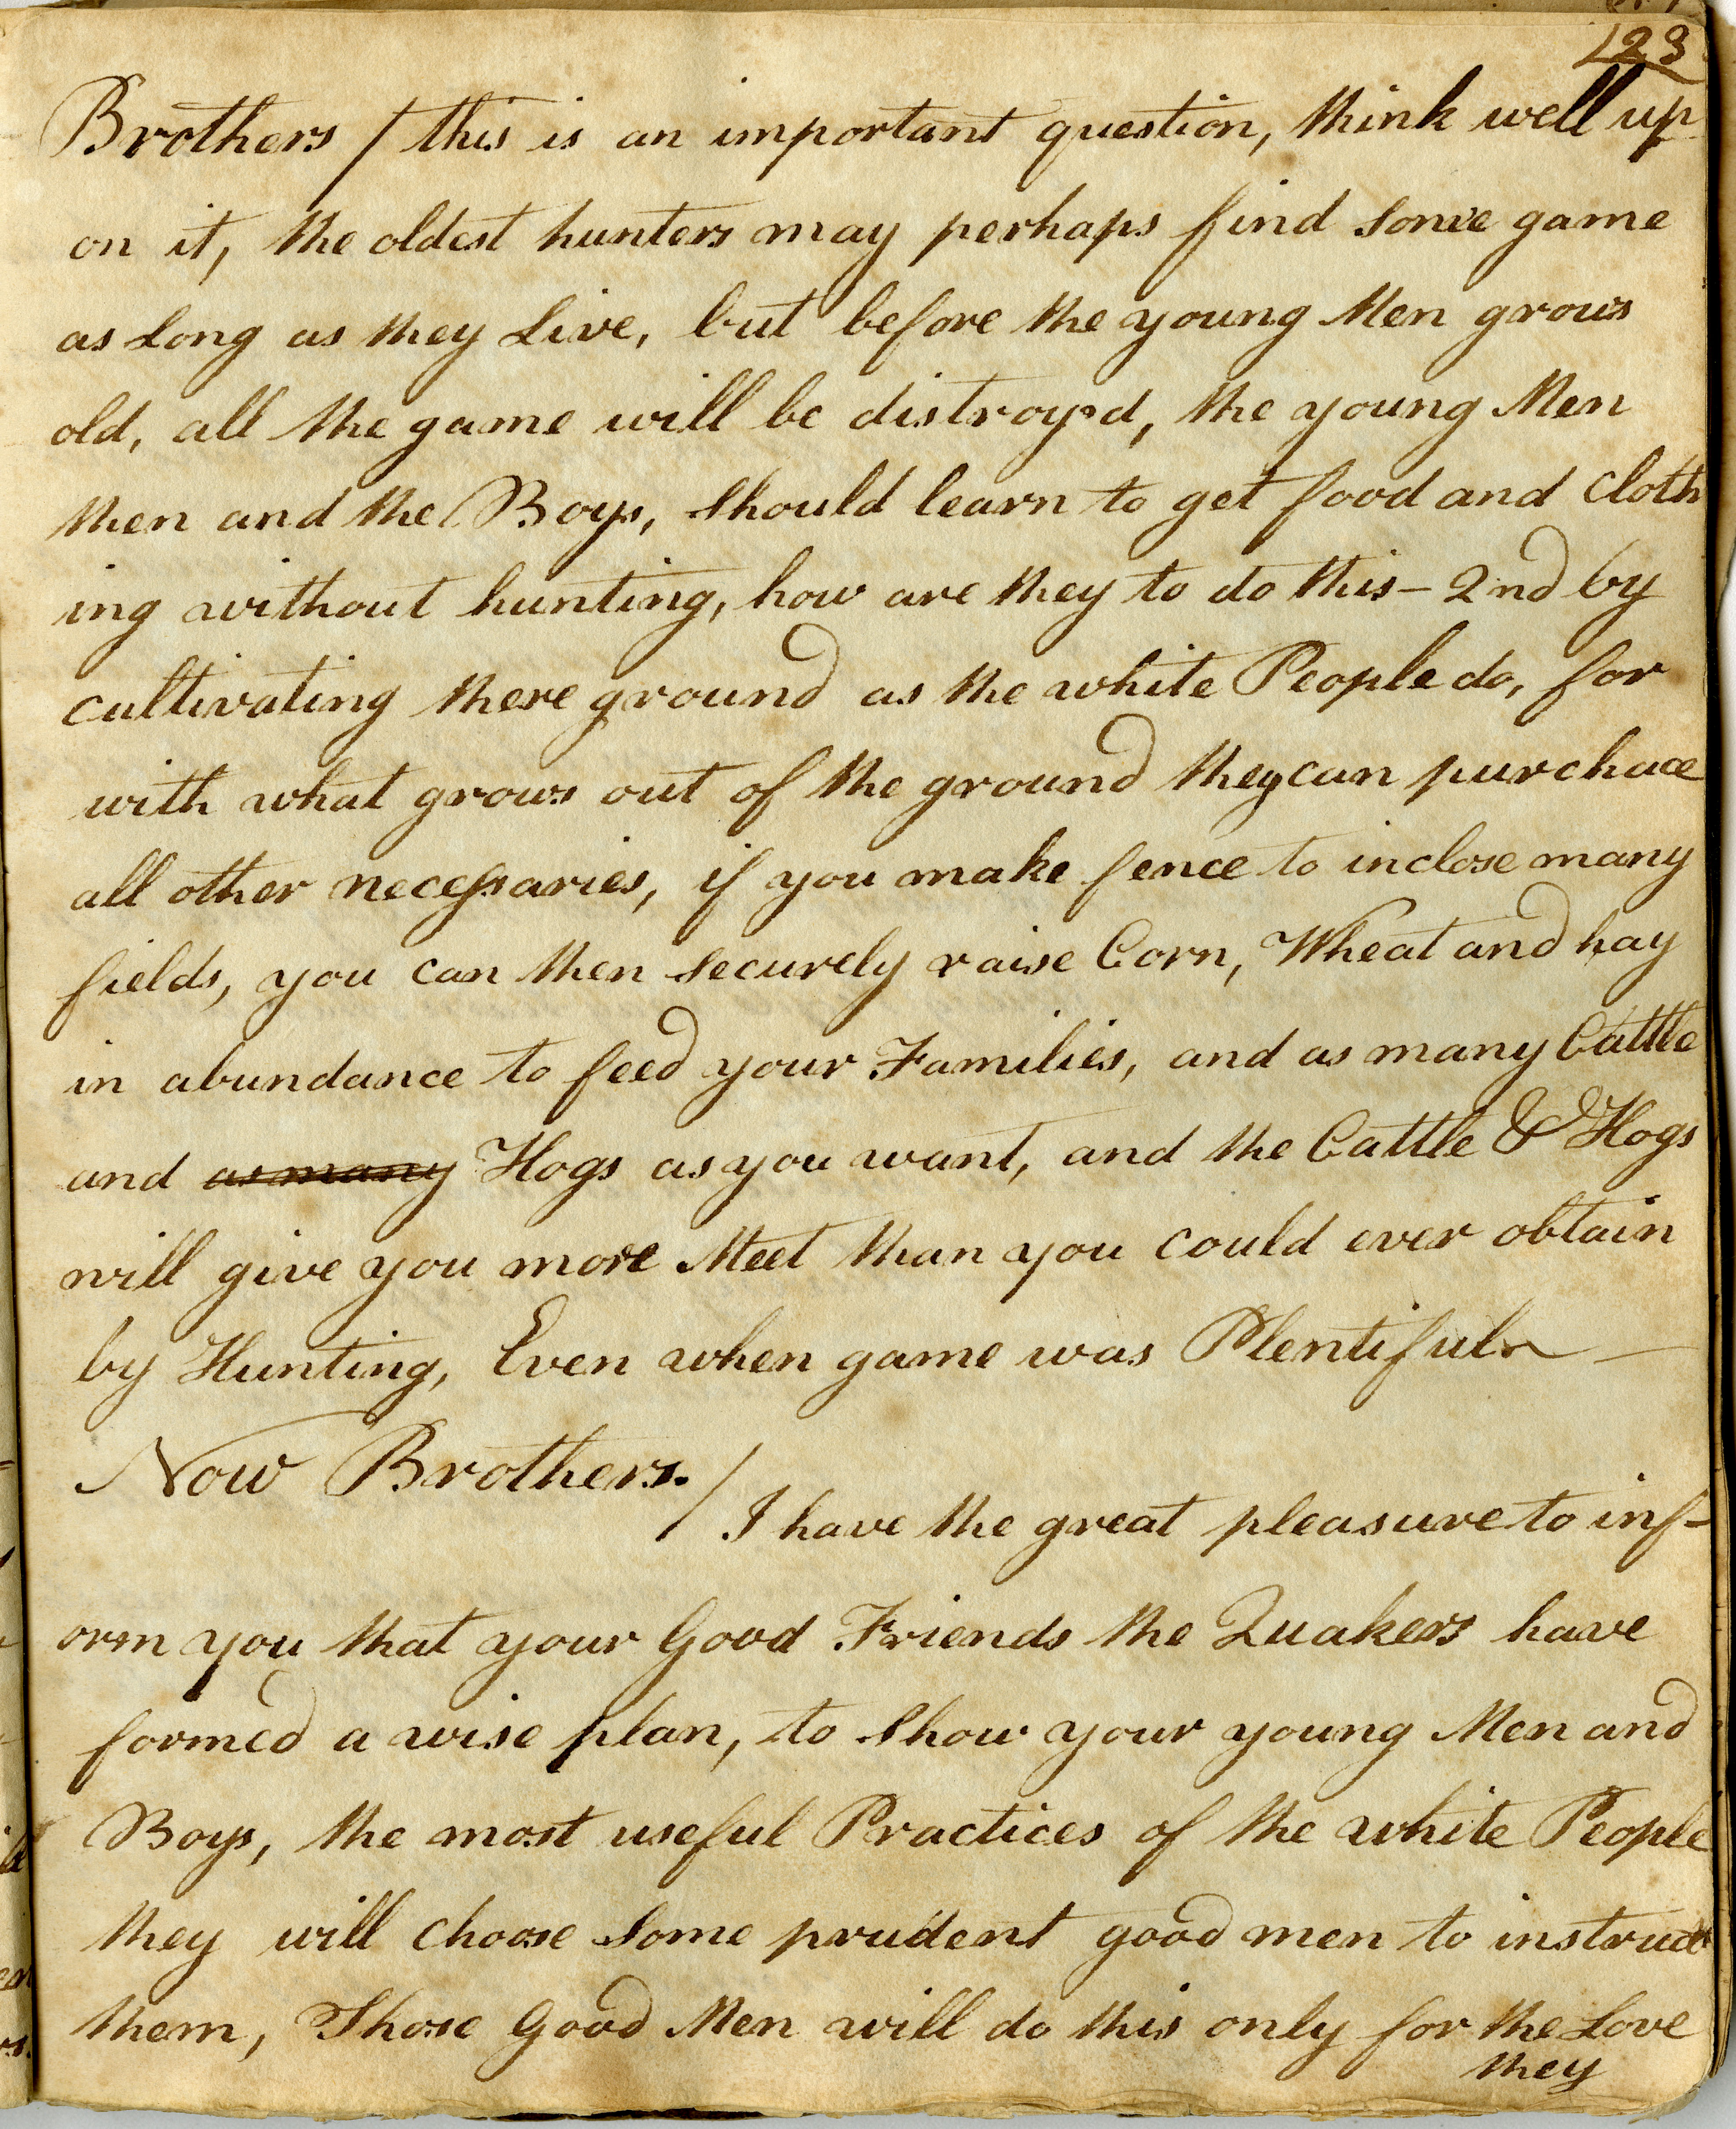 123
Brothers / this is an important question, think well up
on it, the oldest hunters may perhaps find some game
as Long as they Live, but before the young Men grows
old, all the game will be distroy'd, the young Men
then and the Boys, should learn to get food and Cloth
ing without hunting, how are they to do this – 2nd by
cultivating there ground as the white People do, for
with what grows out of the ground they can purchace
all other necessaries, if you make fence to inclose many
fields, you can then securely raise Corn, Wheat and hay
in abundance to feed your Families, and as many Cattle
and as many Hogs as you want, and the Cattle & Hogs
will give you more Meet than you could ever obtain
by Hunting, Even when game was Plentiful —
Now Brothers. /
I have the great pleasure to inf-
orm you that your Good Friends the Quakers have
formed a wise plan, to show your young Men and
Boys, the most useful Practices of the white People
they will choose some prudent good men to instruct
them, Those Good Men will do this only for the Love
they